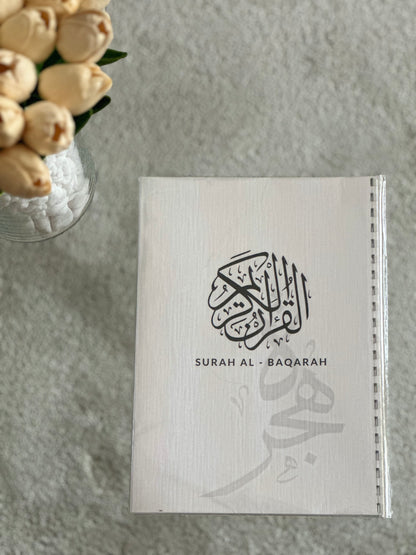 القرآن الكريم
SURAH AL - BAQARAH
هجرة